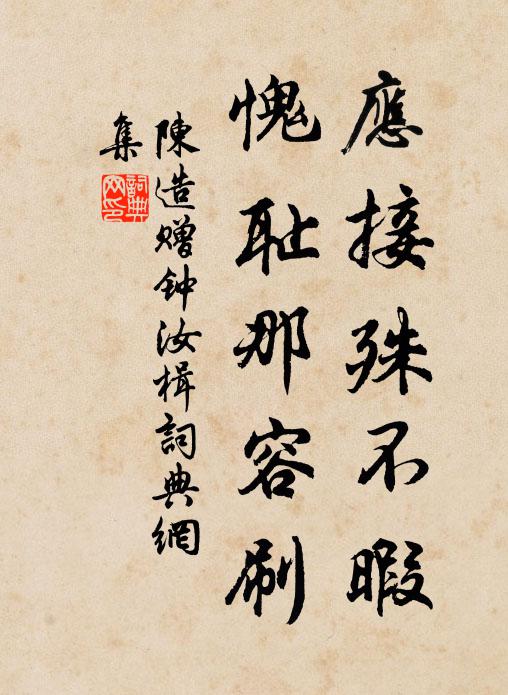 應接殊不暇
愧耻那容刷
陳造赠钟汝楫詞典網
集
詞典
网印